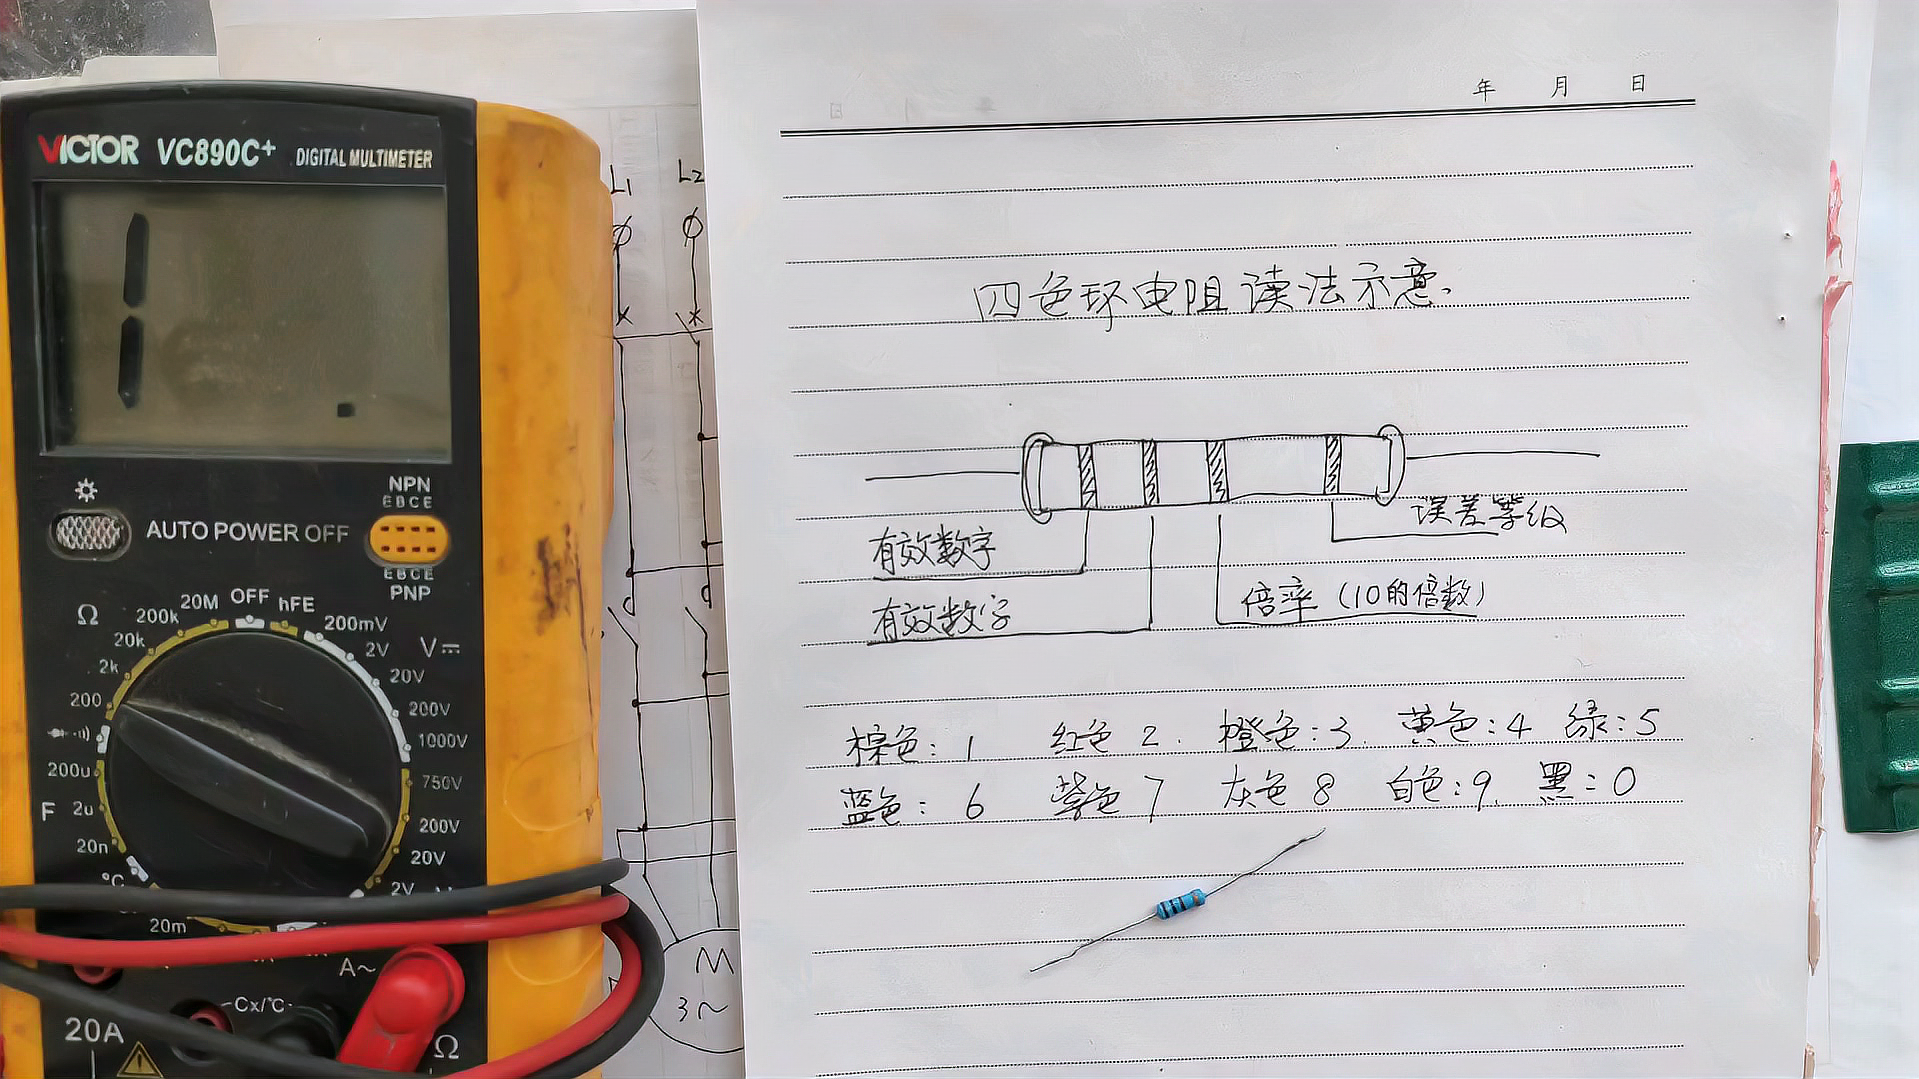 VICTOR VC890C+ DIGITAL MULTIMETER
1 .
NPN
EBCE
AUTO POWER OFF
EBCE
PNP
Ω
200k
20M
OFF
hFE
200mV
20k
2V
V
2k
20V
200
200V
1000V
200u
750V
F
2u
200V
20n
20V
°C
2V
20m
A~
Cx/°C
20A
Ω
L1
L2
M
3~
年 月 日
四色环电阻读法示意.
误差等级
有效数字
倍率(10的倍数)
有效数字
棕色:1 红色 2. 橙色:3. 黄色:4 绿:5
蓝色:6 紫色 7 灰色 8 白色:9. 黑:0